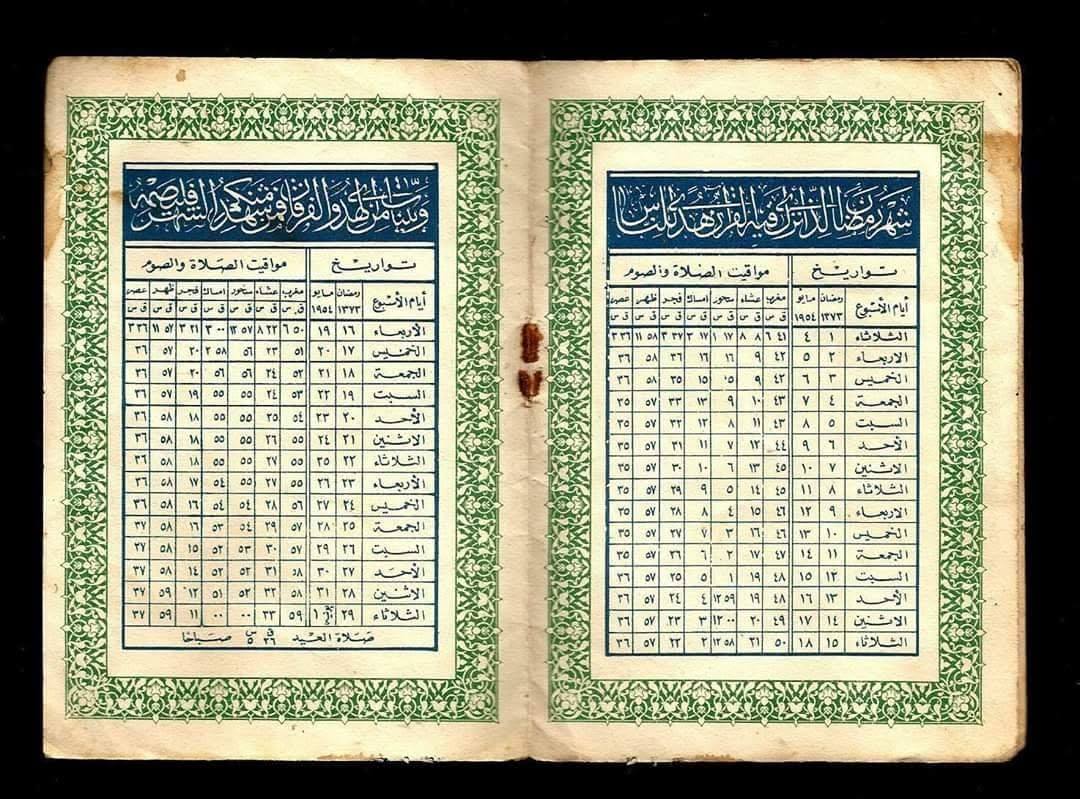 شهر رمضان الذي انزل فيه القرآن هدى للناس
تواريخ مواقيت الصلاة والصوم
أيام الأسبوع رمضان مايو مغرب عشاء سحور امساك فجر ظهر عصر
١٣٧٣ ١٩٥٤ ق س ق س ق س ق س ق س ق س ق س
الثلاثاء ١ ٤ ٤١ ٦ ٨ ٨ ١٧ ١ ١٧ ٣ ٣٧ ٣ ٥٨ ١١ ٣٦ ٣
الاربعاء ٢ ٥ ٤٢ ٩ ١٦ ١٦ ٣٦ ٥٨ ٣٦
الخميس ٣ ٦ ٤٢ ٩ ١٥ ٣٥ ٥٨ ٣٦
الجمعة ٤ ٧ ٤٣ ١٠ ٩ ١٣ ٣٣ ٥٧ ٣٥
السبت ٥ ٨ ٤٣ ١١ ٨ ١٢ ٣٢ ٥٧ ٣٥
الأحد ٦ ٩ ٤٤ ١٢ ٧ ١١ ٣١ ٥٧ ٣٥
الاثنين ٧ ١٠ ٤٥ ١٣ ٦ ١٠ ٣٠ ٥٧ ٣٥
الثلثاء ٨ ١١ ٤٥ ١٤ ٥ ٩ ٢٩ ٥٧ ٣٥
الاربعاء ٩ ١٢ ٤٦ ١٥ ٤ ٨ ٢٨ ٥٧ ٣٥
الخميس ١٠ ١٣ ٤٦ ١٦ ٣ ٧ ٢٧ ٥٧ ٣٥
الجمعة ١١ ١٤ ٤٧ ١٧ ٢ ٦ ٢٦ ٥٧ ٣٥
السبت ١٢ ١٥ ٤٨ ١٩ ١ ٥ ٢٥ ٥٧ ٣٦
الأحد ١٣ ١٦ ٤٨ ١٩ ٥٩ ١٢ ٤ ٢٤ ٥٧ ٣٦
الاثنين ١٤ ١٧ ٤٩ ٢٠ ٠٠ ١٢ ٣ ٢٣ ٥٧ ٣٦
الثلاثاء ١٥ ١٨ ٥٠ ٢١ ٥٨ ١٢ ٢ ٢٢ ٥٧ ٣٦
وبينات من الهدى والفرقان فمن شهد منكم الشهر فليصمه
تواريخ مواقيت الصلاة والصوم
أيام الأسبوع رمضان مايو مغرب عشاء سحور امساك فجر ظهر عصر
١٣٧٣ ١٩٥٤ ق س ق س ق س ق س ق س ق س ق س
الأربعاء ١٦ ١٩ ٥٠ ٦ ٢٢ ٨ ٥٧ ١٢ ٠٠ ٣ ٢١ ٣ ٥٧ ١١ ٣٦ ٣
الخميس ١٧ ٢٠ ٥١ ٢٣ ٥٦ ٥٨ ٢ ٢٠ ٥٧ ٣٦
الجمعة ١٨ ٢١ ٥٢ ٢٤ ٥٦ ٥٦ ٢٠ ٥٧ ٣٦
السبت ١٩ ٢٢ ٥٣ ٢٤ ٥٥ ٥٥ ١٩ ٥٧ ٣٦
الأحد ٢٠ ٢٣ ٥٤ ٢٥ ٥٥ ٥٥ ١٨ ٥٨ ٣٦
الاثنين ٢١ ٢٤ ٥٥ ٢٦ ٥٥ ٥٥ ١٨ ٥٨ ٣٦
الثلاثاء ٢٢ ٢٥ ٥٥ ٢٧ ٥٥ ٥٥ ١٨ ٥٨ ٣٦
الأربعاء ٢٣ ٢٦ ٥٥ ٢٧ ٥٥ ٥٤ ١٧ ٥٨ ٣٦
الخميس ٢٤ ٢٧ ٥٦ ٢٨ ٥٤ ٥٤ ١٦ ٥٨ ٣٦
الجمعة ٢٥ ٢٨ ٥٧ ٢٩ ٥٤ ٥٣ ١٦ ٥٨ ٣٧
السبت ٢٦ ٢٩ ٥٧ ٣٠ ٥٣ ٥٢ ١٥ ٥٨ ٣٧
الأحد ٢٧ ٣٠ ٥٨ ٣١ ٥٢ ٥٢ ١٤ ٥٨ ٣٧
الاثنين ٢٨ ٣١ ٥٨ ٣٢ ٥٢ ٥١ ١٢ ٥٩ ٣٧
الثلاثاء ٢٩ ١ ٥٩ ٣٣ ٠٠ ٠٠ ١١ ٥٩ ٣٧
صلاة العيد ق ٣٦ س ٥ صباحا